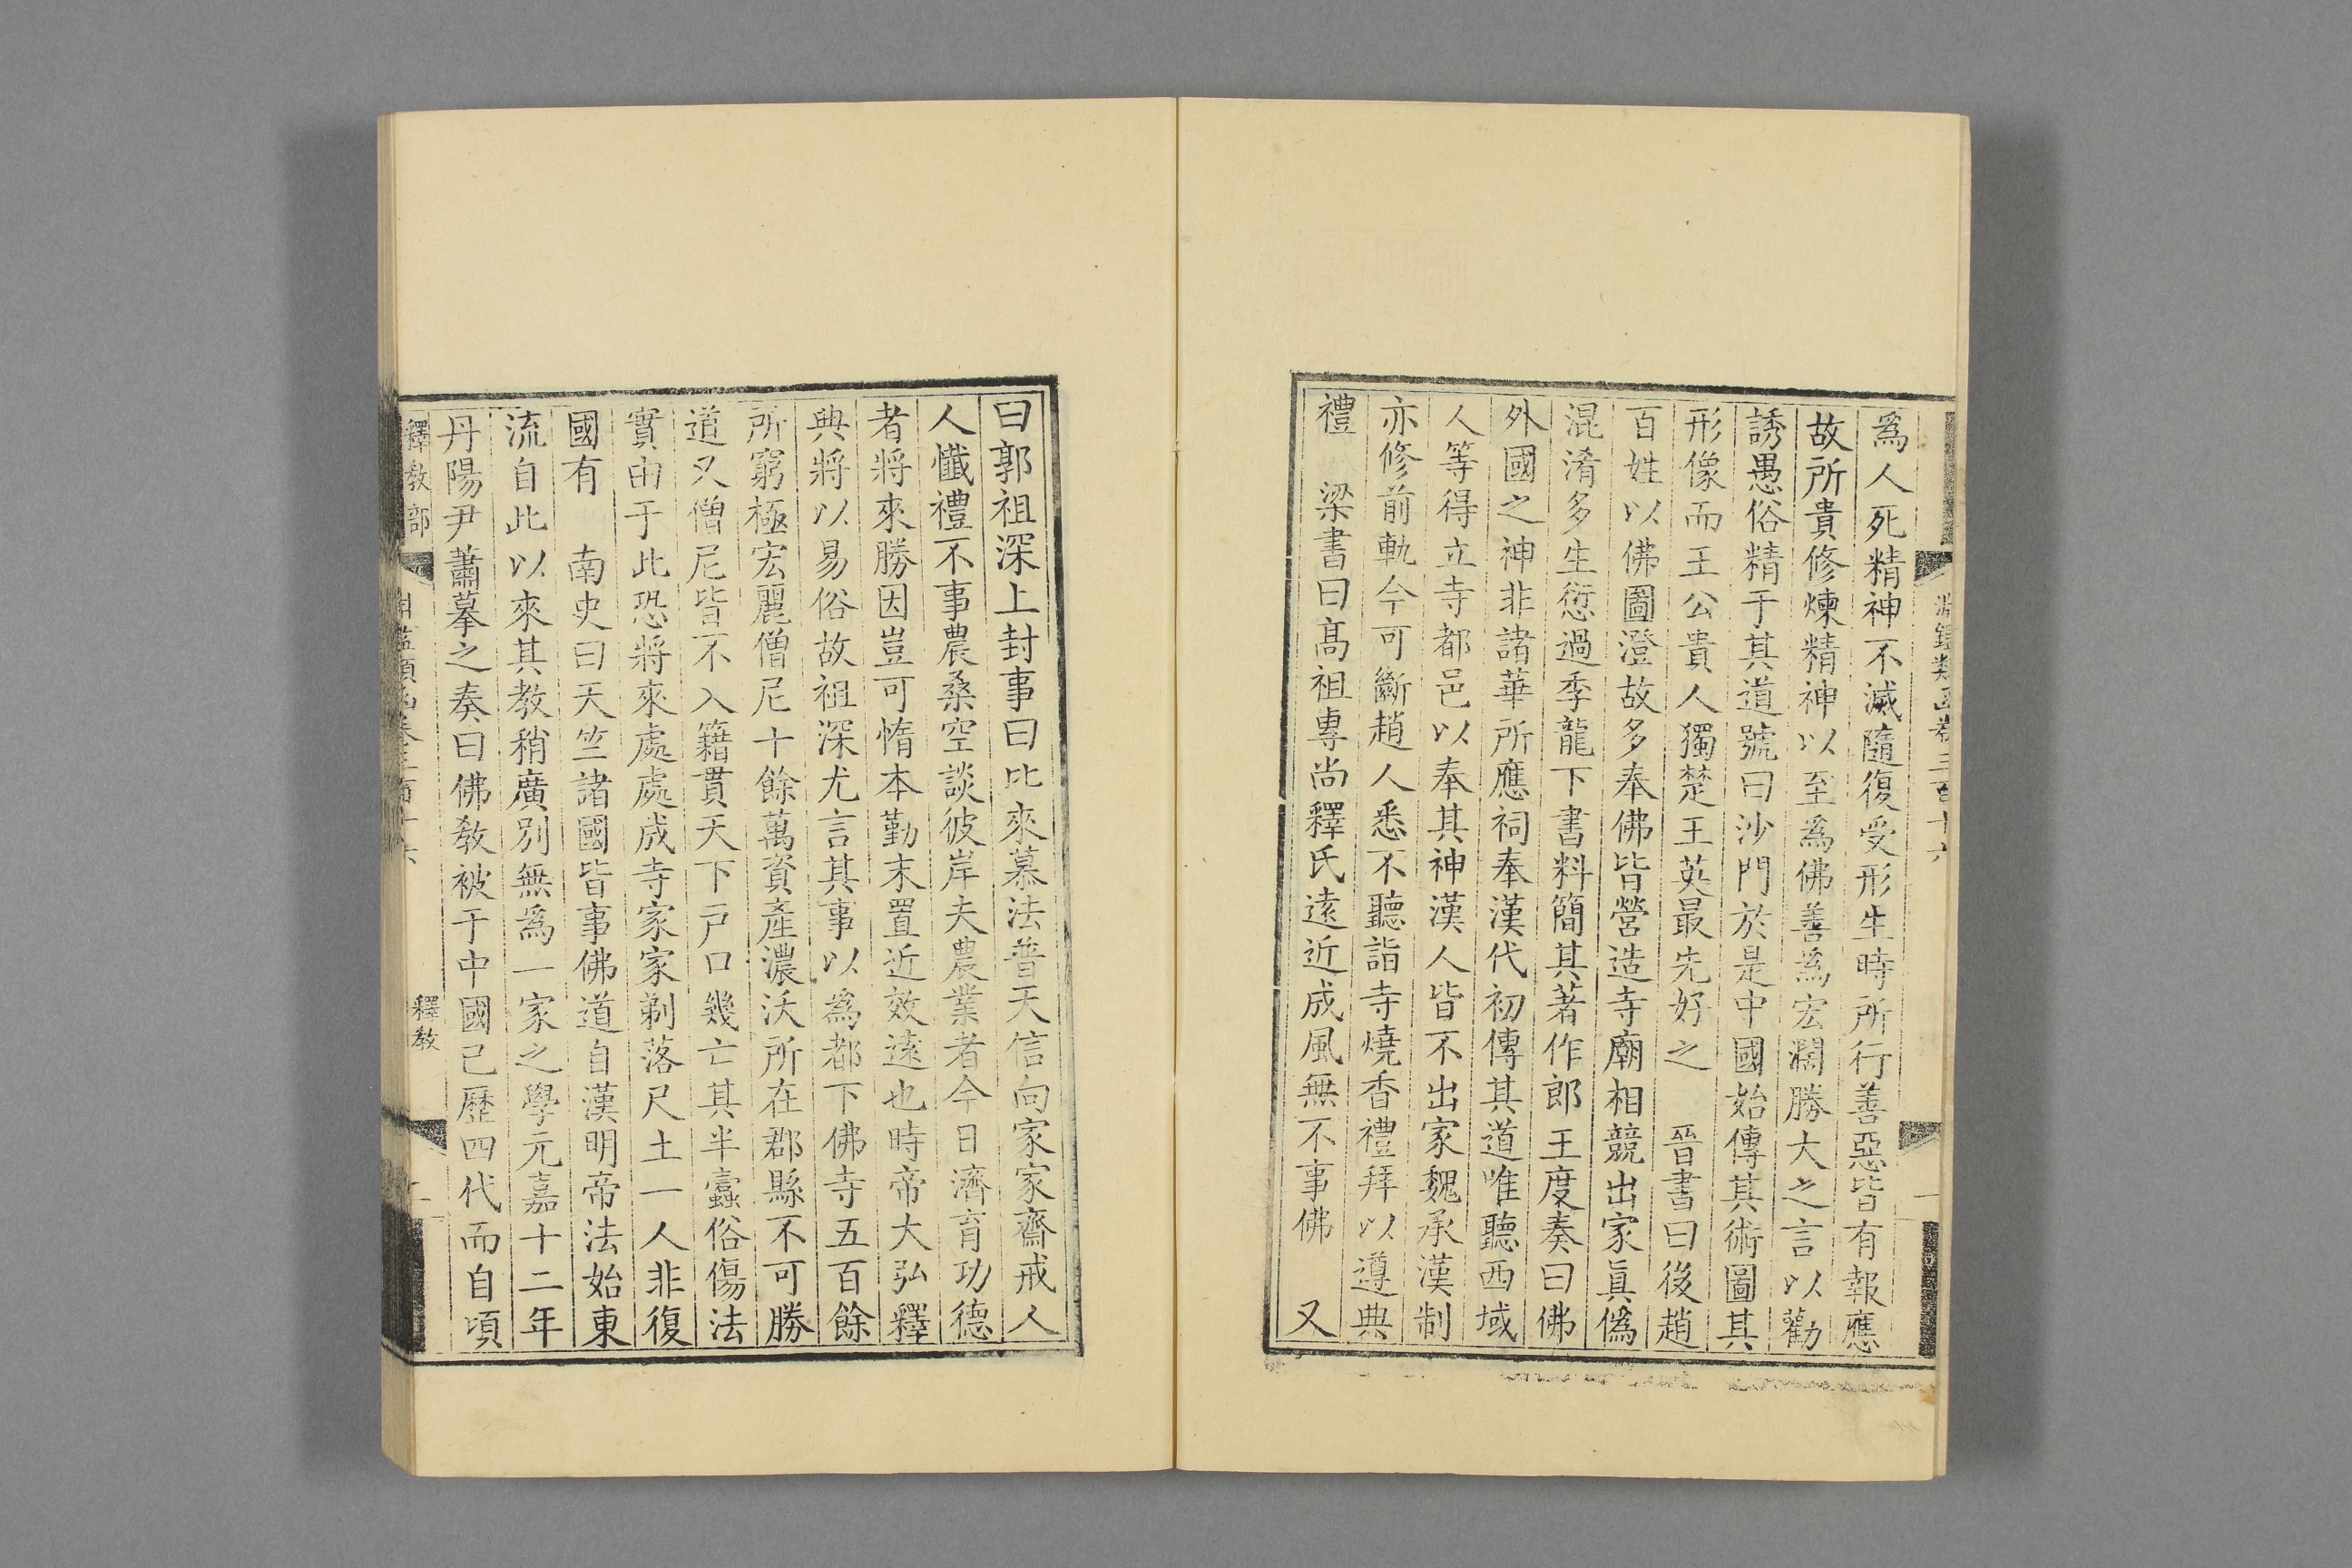 淵鑑類函卷三百十六
爲人死精神不滅隨復受形生時所行善惡皆有報應
故所貴修煉精神以至爲佛善爲宏濶勝大之言以勸
誘愚俗精于其道號曰沙門於是中國始傳其術圖其
形像而王公貴人獨楚王英最先好之　晉書曰後趙
百姓以佛圖澄故多奉佛皆營造寺廟相競出家眞僞
混淆多生愆過季龍下書料簡其著作郎王度奏曰佛
外國之神非諸華所應祠奉漢代初傳其道唯聽西域
人等得立寺都邑以奉其神漢人皆不出家魏承漢制
亦修前軌今可斷趙人悉不聽詣寺燒香禮拜以遵典
禮　梁書曰髙祖專尚釋氏遠近成風無不事佛　又
曰郭祖深上封事曰比來慕法普天信向家家齋戒人
人懺禮不事農桑空談彼岸夫農業者今日濟育功德
者將來勝因豈可惰本勤末置近效遠也時帝大弘釋
典將以易俗故祖深尤言其事以爲都下佛寺五百餘
所窮極宏麗僧尼十餘萬資產濃沃所在郡縣不可勝
道又僧尼皆不入籍貫天下戸口幾亡其半蠧俗傷法
實由于此恐將來處處成寺家家剃落尺土一人非復
國有　南史曰天竺諸國皆事佛道自漢明帝法始東
流自此以來其教稍廣別無爲一家之學元嘉十二年
丹陽尹蕭摹之奏曰佛敎被于中國已歷四代而自頃
釋敎部　釋敎